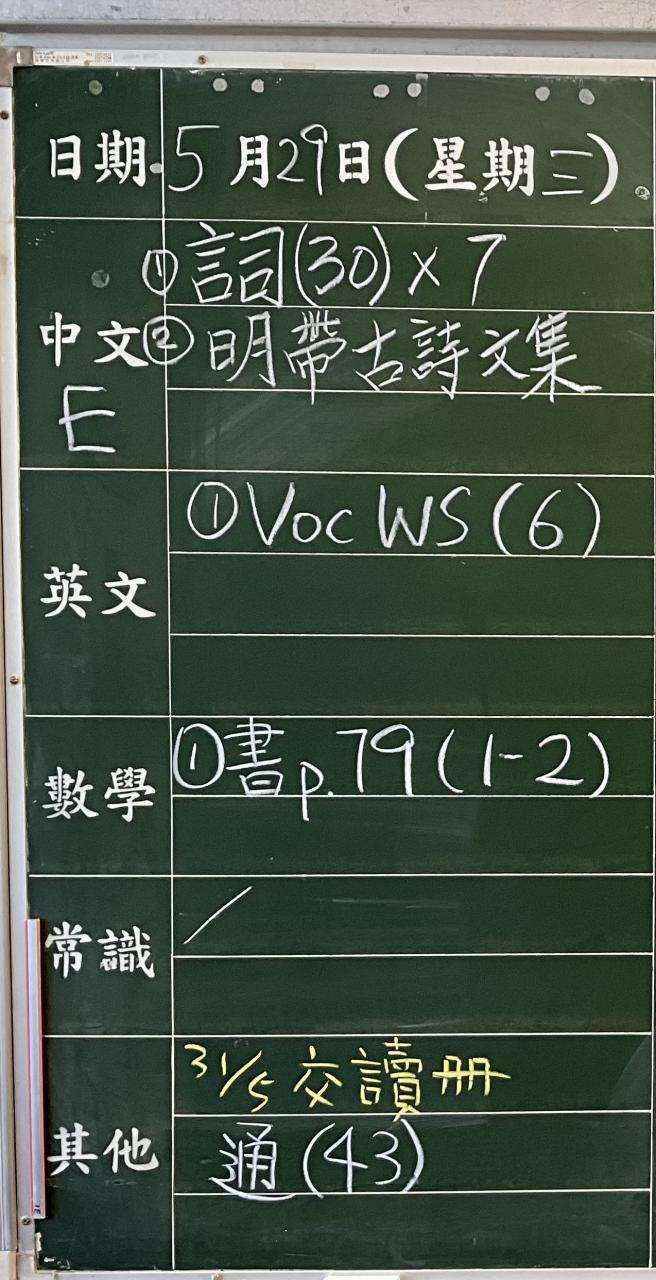 日期 5月29日(星期三)
①詞(30)×7
中文 ②明帶古詩文集
E
①Voc WS(6)
英文
①書p.79(1-2)
數學
／
常識
31/5 交讀冊
其他 通(43)